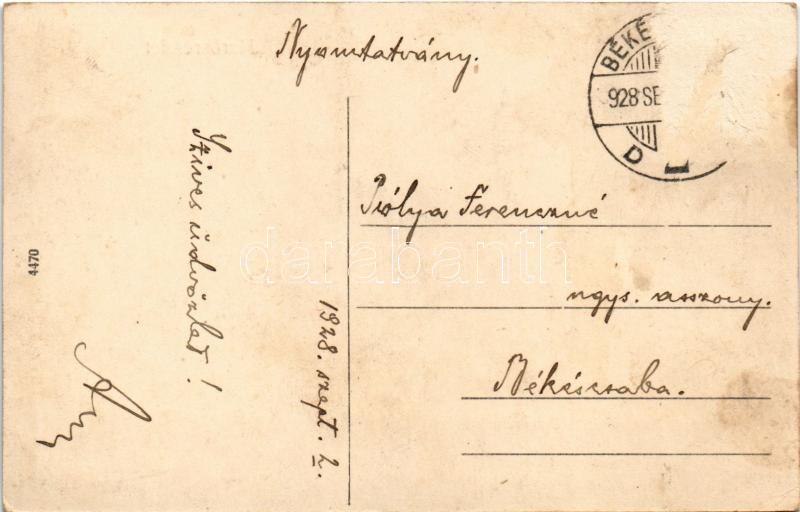 Nyomtatvány.
BÉKÉ
928 SE
D
Pólya Ferenczné
ngys. asszony.
Békéscsaba.
Szives üdvözlet!
1928. szept. 2.
4470
darabanth